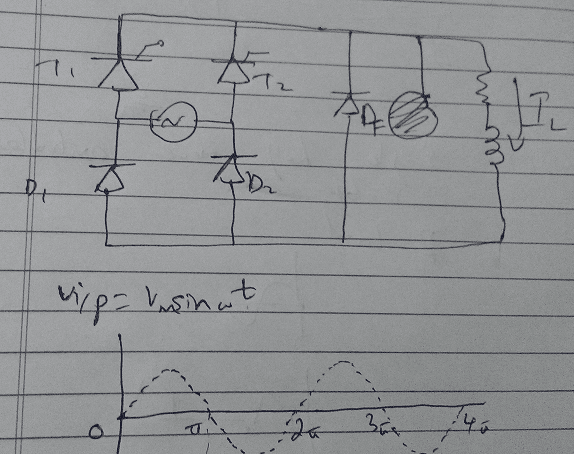 T₁ T₂
D_f I_L
D₁ D₂
Vi/p = Vₘ sin ωt
0 π 2π 3π 4π